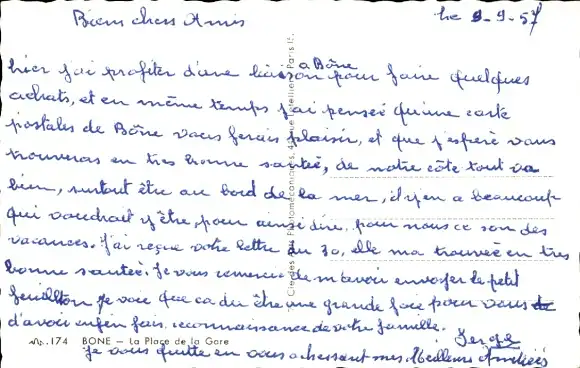 Biens chers Amis
le 9-9-57
hier j'ai profiter d'une liaison a Bône pour faire quelques
achats, et en même temps j'ai pensé qu'une carte
postales de Bône vous ferais plaisir, et que j'espère vous
trouveras en très bonne santée, de notre côte tout va
bien, surtout être au bord de la mer, il y en a beaucoup
qui voudrait y être, pour ainsi dire, pour nous ce son des
vacances. J'ai reçue votre lettre du 30, elle ma trouvée en très
bonne santée. Je vous remercie de m'avoir envoyer le petit
feuillton je voie que ca du être une grande joie pour vous
d'avoir enfin fais reconnaissance de votre famille.
Serge
174 BONE — La Place de la Gare
je vous quitte en vous adressant mes Meilleurs Amitiés